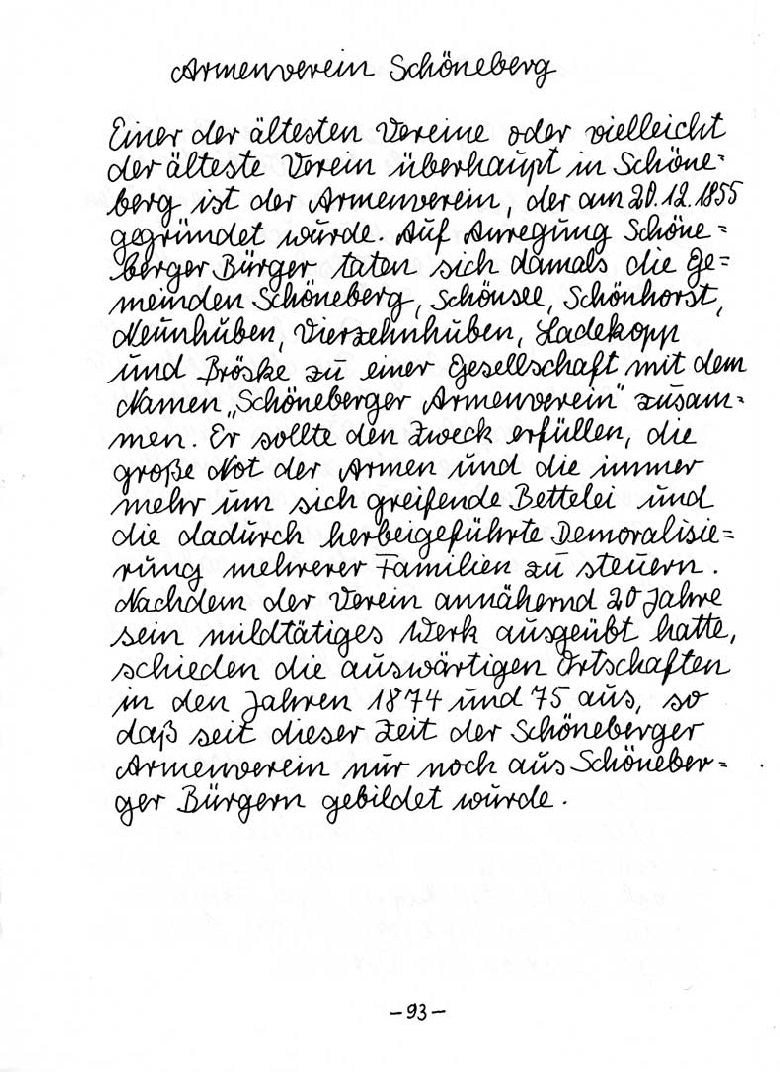 Armenverein Schöneberg
Einer der ältesten Vereine oder vielleicht
der älteste Verein überhaupt in Schöne=
berg ist der Armenverein, der am 20.12.1855
gegründet wurde. Auf Anregung Schöne=
berger Bürger taten sich damals die Ge=
meinden Schöneberg, Schönsee, Schönhorst,
Neunhuben, Vierzehnhuben, Ladekopp
und Bröske zu einer Gesellschaft mit dem
Namen „Schöneberger Armenverein" zusam=
men. Er sollte den Zweck erfüllen, die
große Not der Armen und die immer
mehr um sich greifende Bettelei und
die dadurch herbeigeführte Demoralisie=
rung mehrerer Familien zu steuern.
Nachdem der Verein annähernd 20 Jahre
sein mildtätiges Werk ausgeübt hatte,
schieden die auswärtigen Ortschaften
in den Jahren 1874 und 75 aus, so
daß seit dieser Zeit der Schöneberger
Armenverein nur noch aus Schöneber=
ger Bürgern gebildet wurde.
-93-